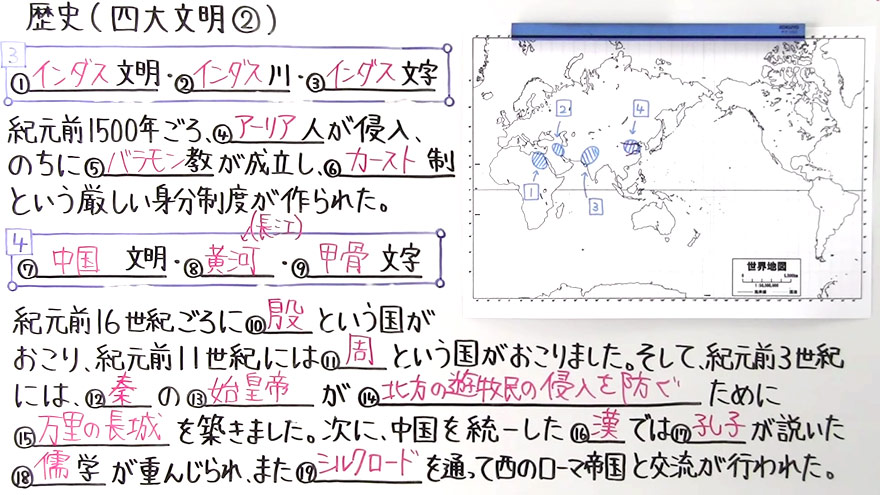 歴史(四大文明②)
3
①インダス文明・②インダス川・③インダス文字
紀元前1500年ごろ、④アーリア人が侵入、
のちに⑤バラモン教が成立し、⑥カースト制
という厳しい身分制度が作られた。
4
(長江)
⑦中国文明・⑧黄河・⑨甲骨文字
紀元前16世紀ごろに⑩殷という国が
おこり、紀元前11世紀には⑪周という国がおこりました。そして、紀元前3世紀
には、⑫秦の⑬始皇帝が⑭北方の遊牧民の侵入を防ぐために
⑮万里の長城を築きました。次に、中国を統一した⑯漢では⑰孔子が説いた
⑱儒学が重んじられ、また⑲シルクロードを通って西のローマ帝国と交流が行われた。
2
4
1
3
世界地図